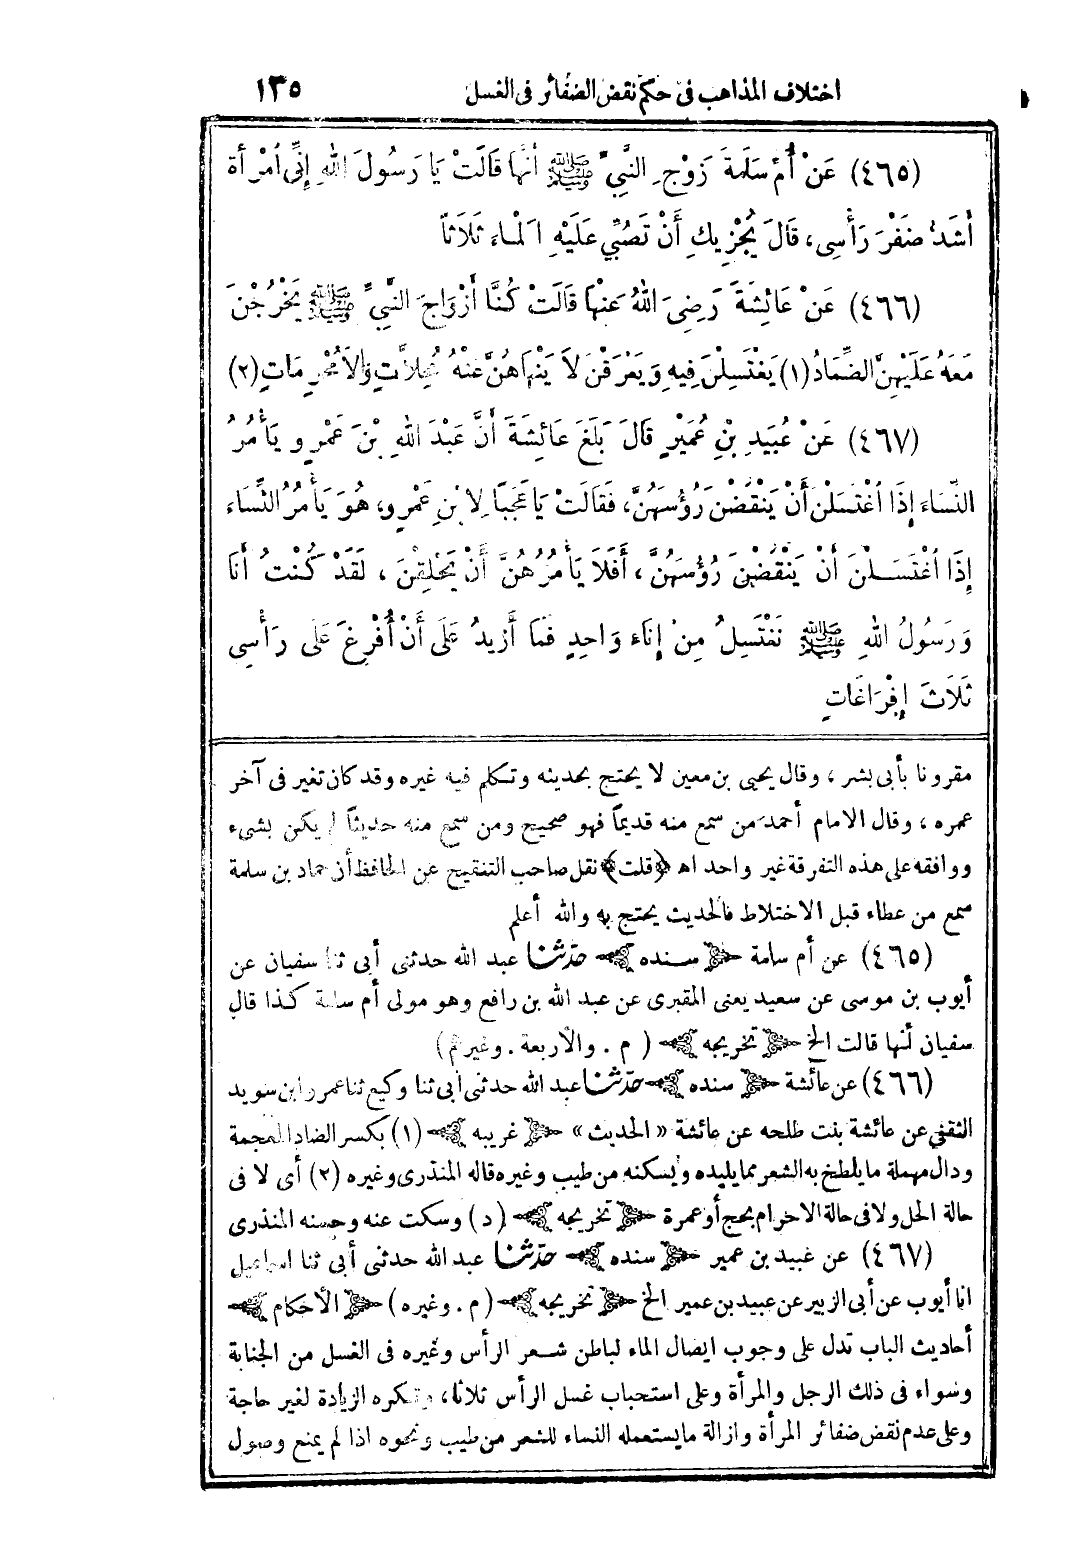 اختلاف المذاهب فى حكم نقض الضفائر فى الغسل ١٣٥
(٤٦٥) عَنْ أُمِّ سَلَمَةَ زَوْجِ النَّبِيِّ ﷺ أَنَّهَا قَالَتْ يَا رَسُولَ اللهِ إِنِّى أمْرَأَة
أَشَدُّ ضَفْرَ رَأْسِى، قَالَ يُجْزِيكِ أَنْ تَصُبِّي عَلَيْهِ الْمَاءَ ثَلَاثاً
(٤٦٦) عَنْ عَائِشَةَ رَضِىَ اللهُ عَنْهَا قَالَتْ كُنَّا أَزْوَاجَ النَّبِيِّ ﷺ يَخْرُجْنَ
مَعَهُ عَلَيْهِنَّ الضِّمَادُ (١) يَغْتَسِلْنَ فِيهِ وَيَعْرَقْنَ لَا يَنْهَاهُنَّ عَنْهُ مُحِلَّاتٍ وَلَا مُحْرِمَاتٍ (٢)
(٤٦٧) عَنْ عُبَيْدِ بْنِ عُمَيْرٍ قَالَ بَلَغَ عَائِشَةَ أَنَّ عَبْدَ اللهِ بْنَ عَمْرٍو يَأْمُرُ
النِّسَاءَ إِذَا اغْتَسَلْنَ أَنْ يَنْقُضْنَ رُؤُسَهُنَّ، فَقَالَتْ يَا عَجَبًا لِابْنِ عَمْرٍو، هُوَ يَأْمُرُ النِّسَاءَ
إِذَا اغْتَسَلْنَ أَنْ يَنْقُضْنَ رُؤُسَهُنَّ، أَفَلَا يَأْمُرُهُنَّ أَنْ يَحْلِقْنَ، لَقَدْ كُنْتُ أَنَا
وَرَسُولُ اللهِ ﷺ نَغْتَسِلُ مِنْ إِنَاءٍ وَاحِدٍ فَمَا أَزِيدُ عَلَى أَنْ أُفْرِغَ عَلَى رَأْسِى
ثَلَاثَ إِفْرَاغَاتٍ
مقرونا بأبى بشر، وقال يحيى بن معين لا يحتج بحديثه وتكلم فيه غيره وقد كان تغير فى آخر
عمره، وقال الامام أحمد من سمع منه قديماً فهو صحيح ومن سمع منه حديثاً لم يكن بشىء
ووافقه على هذه التفرقة غير واحد اه ﴿قلت﴾ نقل صاحب التنقيح عن الحافظ أن حماد بن سلمة
سمع من عطاء قبل الاختلاط فالحديث يحتج به والله أعلم
(٤٦٥) عن أم سلمة ﴿سنده﴾ حدثنا عبد الله حدثنى أبى ثنا سفيان عن
أيوب بن موسى عن سعيد يعنى المقبرى عن عبد الله بن رافع وهو مولى أم سلمة كذا قال
سفيان أنها قالت الخ ﴿تخريجه﴾ (م. والأربعة. وغيرهم)
(٤٦٦) عن عائشة ﴿سنده﴾ حدثنا عبد الله حدثنى أبى ثنا وكيع ثنا عمر ابن سويد
الثقفى عن عائشة بنت طلحه عن عائشة «الحديث» ﴿غريبه﴾ (١) بكسر الضاد المعجمة
ودال مهملة ما يلطخ به الشعر مما يلبده ويسكنه من طيب وغيره قاله المنذرى وغيره (٢) أى لا فى
حالة الحل ولا فى حالة الاحرام بحج أو عمرة ﴿تخريجه﴾ (د) وسكت عنه وحسنه المنذرى
(٤٦٧) عن عبيد بن عمير ﴿سنده﴾ حدثنا عبد الله حدثنى أبى ثنا اسماعيل
انا أيوب عن أبى الزبير عن عبيد بن عمير الخ ﴿تخريجه﴾ (م. وغيره) ﴿الأحكام﴾
أحاديث الباب تدل على وجوب ايصال الماء لباطن شعر الرأس وغيره فى الغسل من الجنابة
وسواء فى ذلك الرجل والمرأة وعلى استحباب غسل الرأس ثلاثا، وتكره الزيادة لغير حاجة
وعلى عدم نقض ضفائر المرأة وازالة ما يستعمله النساء للشعر من طيب ونحوه اذا لم يمنع وصول